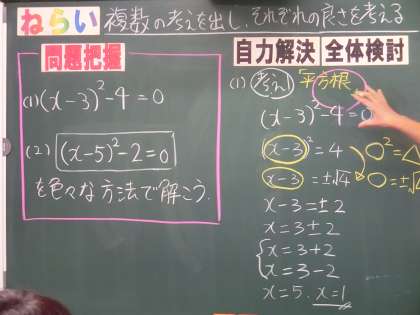 ねらい 複数の考えを出し、それぞれの良さを考える
問題把握
(1) (x-3)²-4=0
(2) (x-5)²-2=0
を色々な方法で解こう.
自力解決 全体検討
(1) 考え1 平方根
(x-3)²-4=0
(x-3)²=4 ○²=△
x-3=±√4 ○=±√
x-3=±2
x=3±2
x=3+2
x=3-2
x=5. x=1